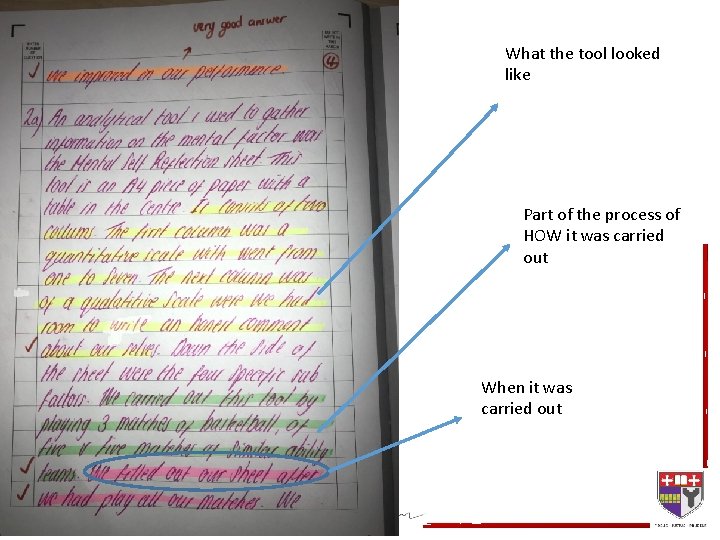 very good answer
ENTER NUMBER OF QUESTION
DO NOT WRITE IN THIS MARGIN
we improved in our performance.
4
2a) An analytical tool I used to gather
information on the mental factor was
the Mental Self Reflection sheet This
tool is an A4 piece of paper with a
table in the centre. It consists of two
collums. The first column was a
quantitative scale with went from
one to seven. The next column was
of a qualatitive scale were we had
room to write an honest comment
about our selves. Down the side of
the sheet were the four specific sub
factors. We carried out this tool by
playing 3 matches of basketball, of
five v five matches of similar ability
teams. We filled out our sheet after
we had play all our matches. We
What the tool looked
like
Part of the process of
HOW it was carried
out
When it was
carried out